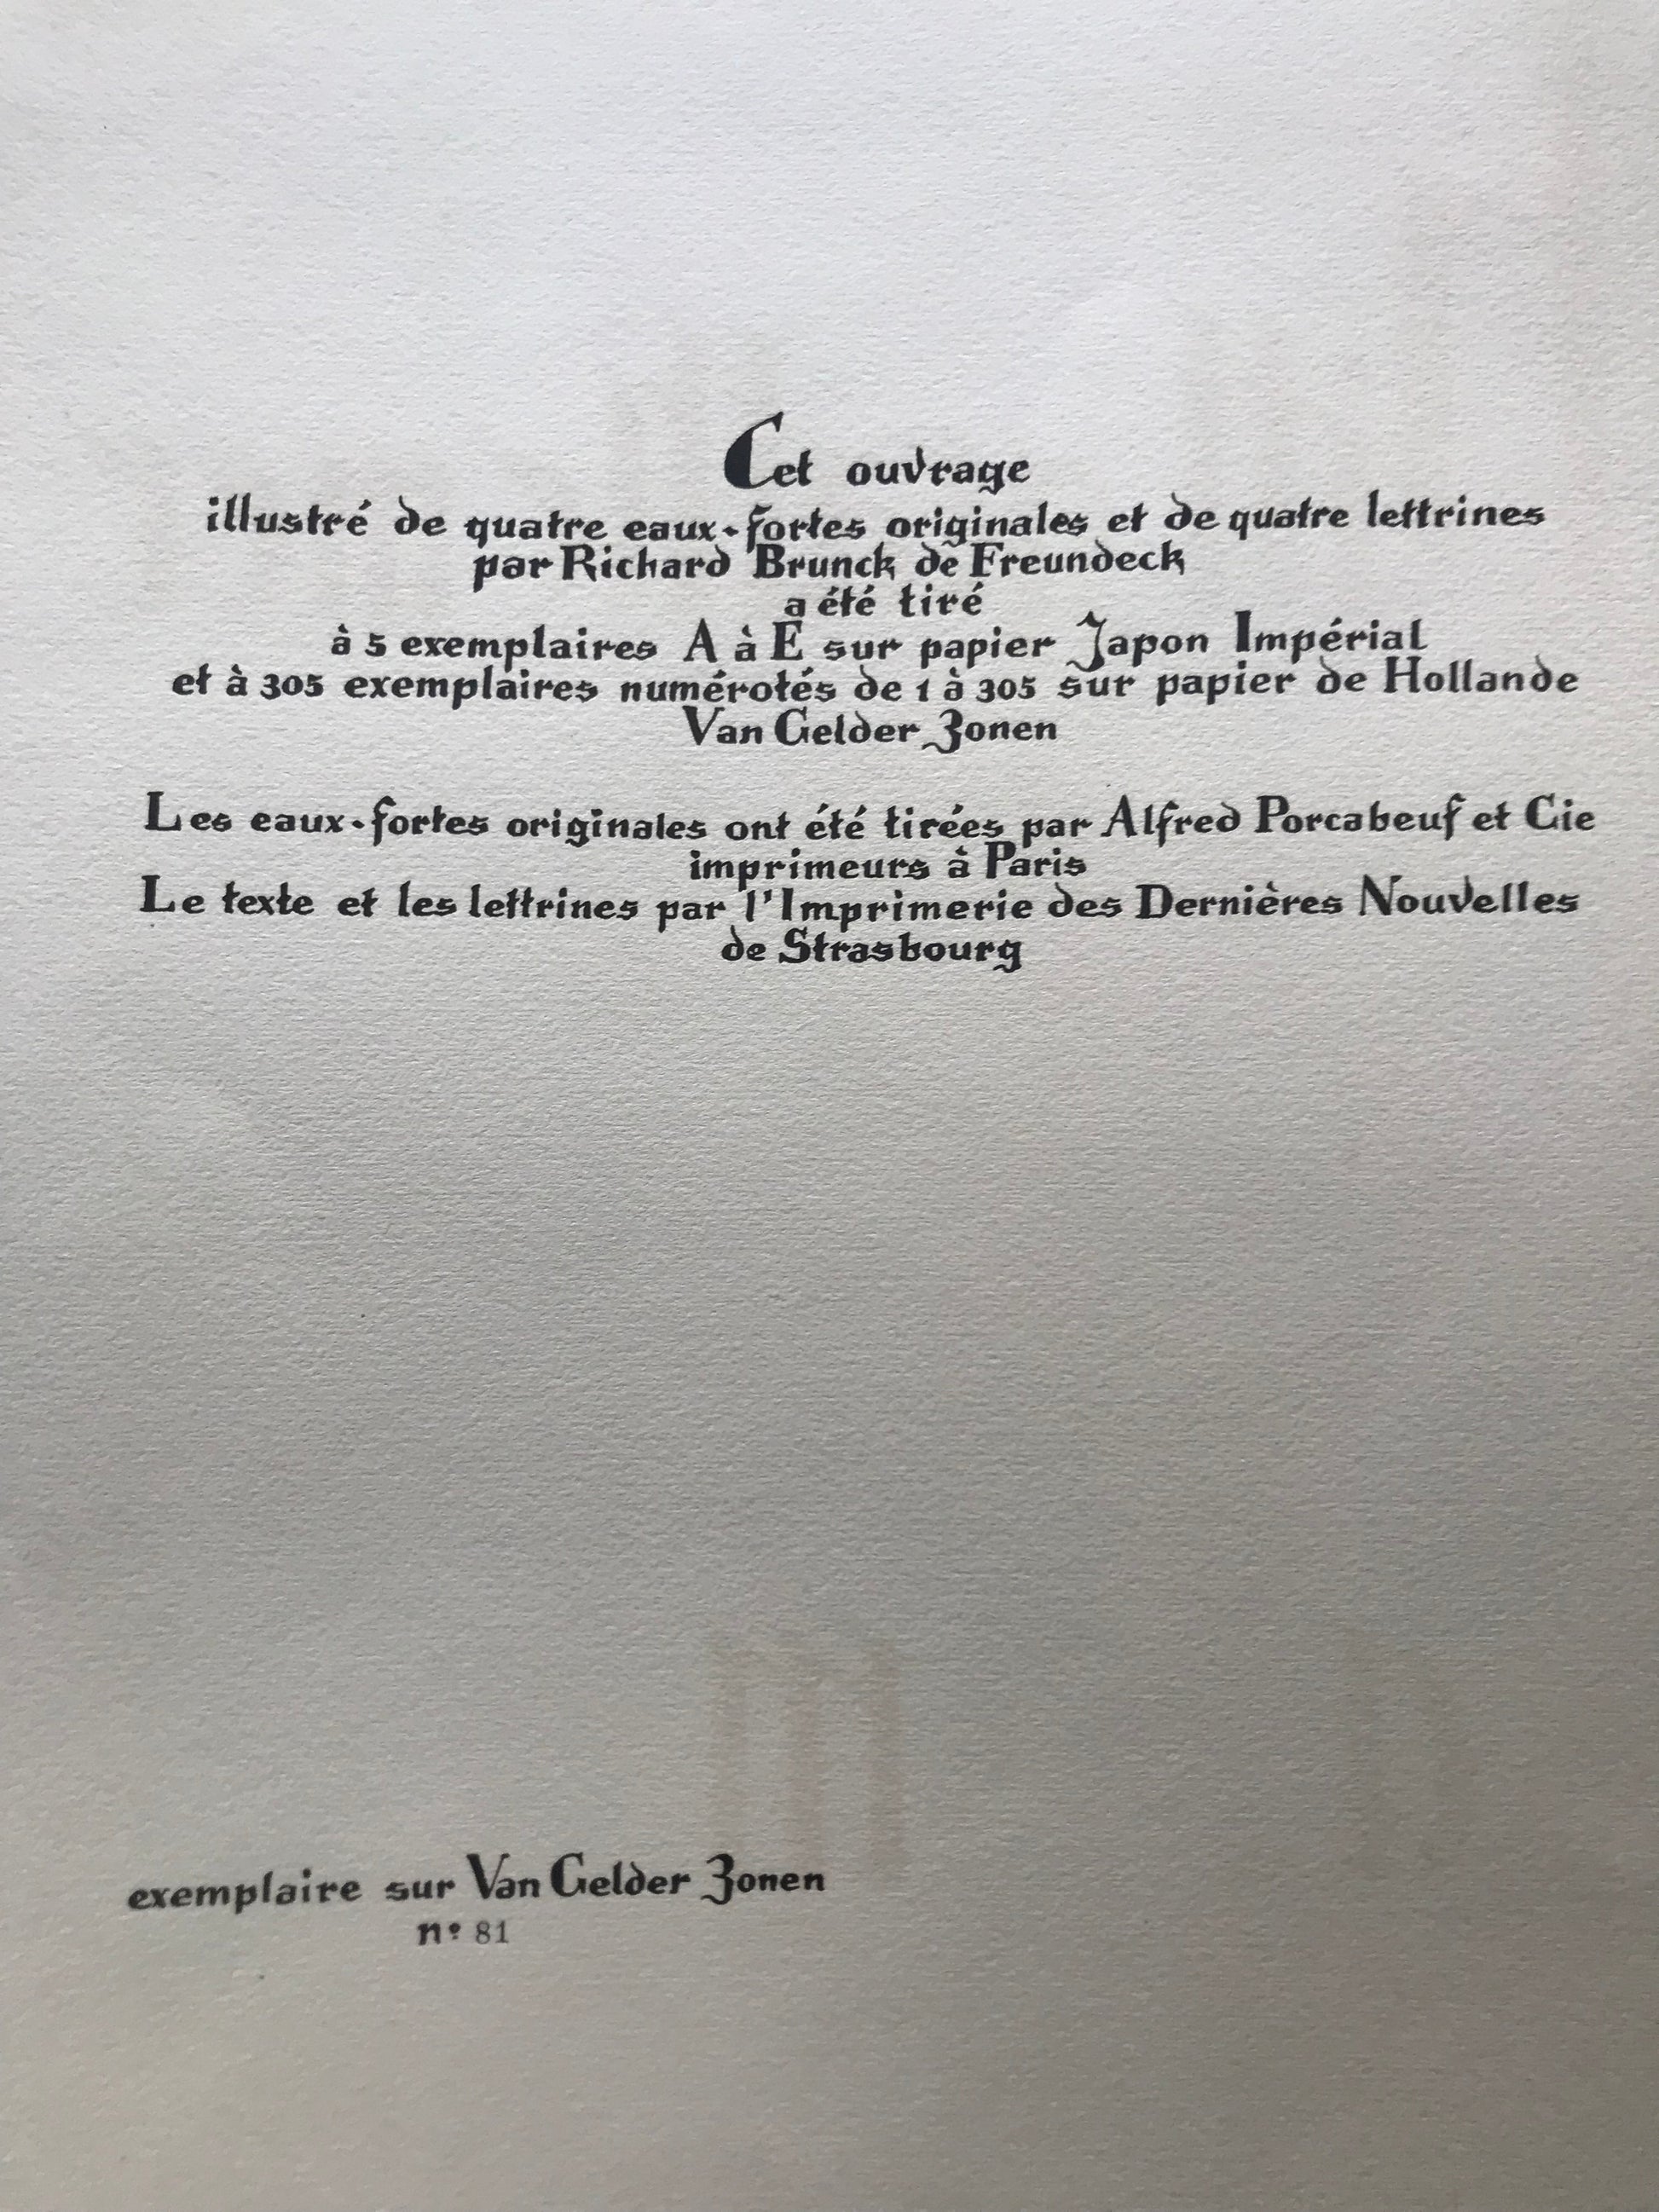 Cet ouvrage
illustré de quatre eaux-fortes originales et de quatre lettrines
par Richard Brunck de Freundeck
a été tiré
à 5 exemplaires A à E sur papier Japon Impérial
et à 305 exemplaires numérotés de 1 à 305 sur papier de Hollande
Van Gelder Zonen
Les eaux-fortes originales ont été tirées par Alfred Porcabeuf et Cie
imprimeurs à Paris
Le texte et les lettrines par l'Imprimerie des Dernières Nouvelles
de Strasbourg
exemplaire sur Van Gelder Zonen
n° 81